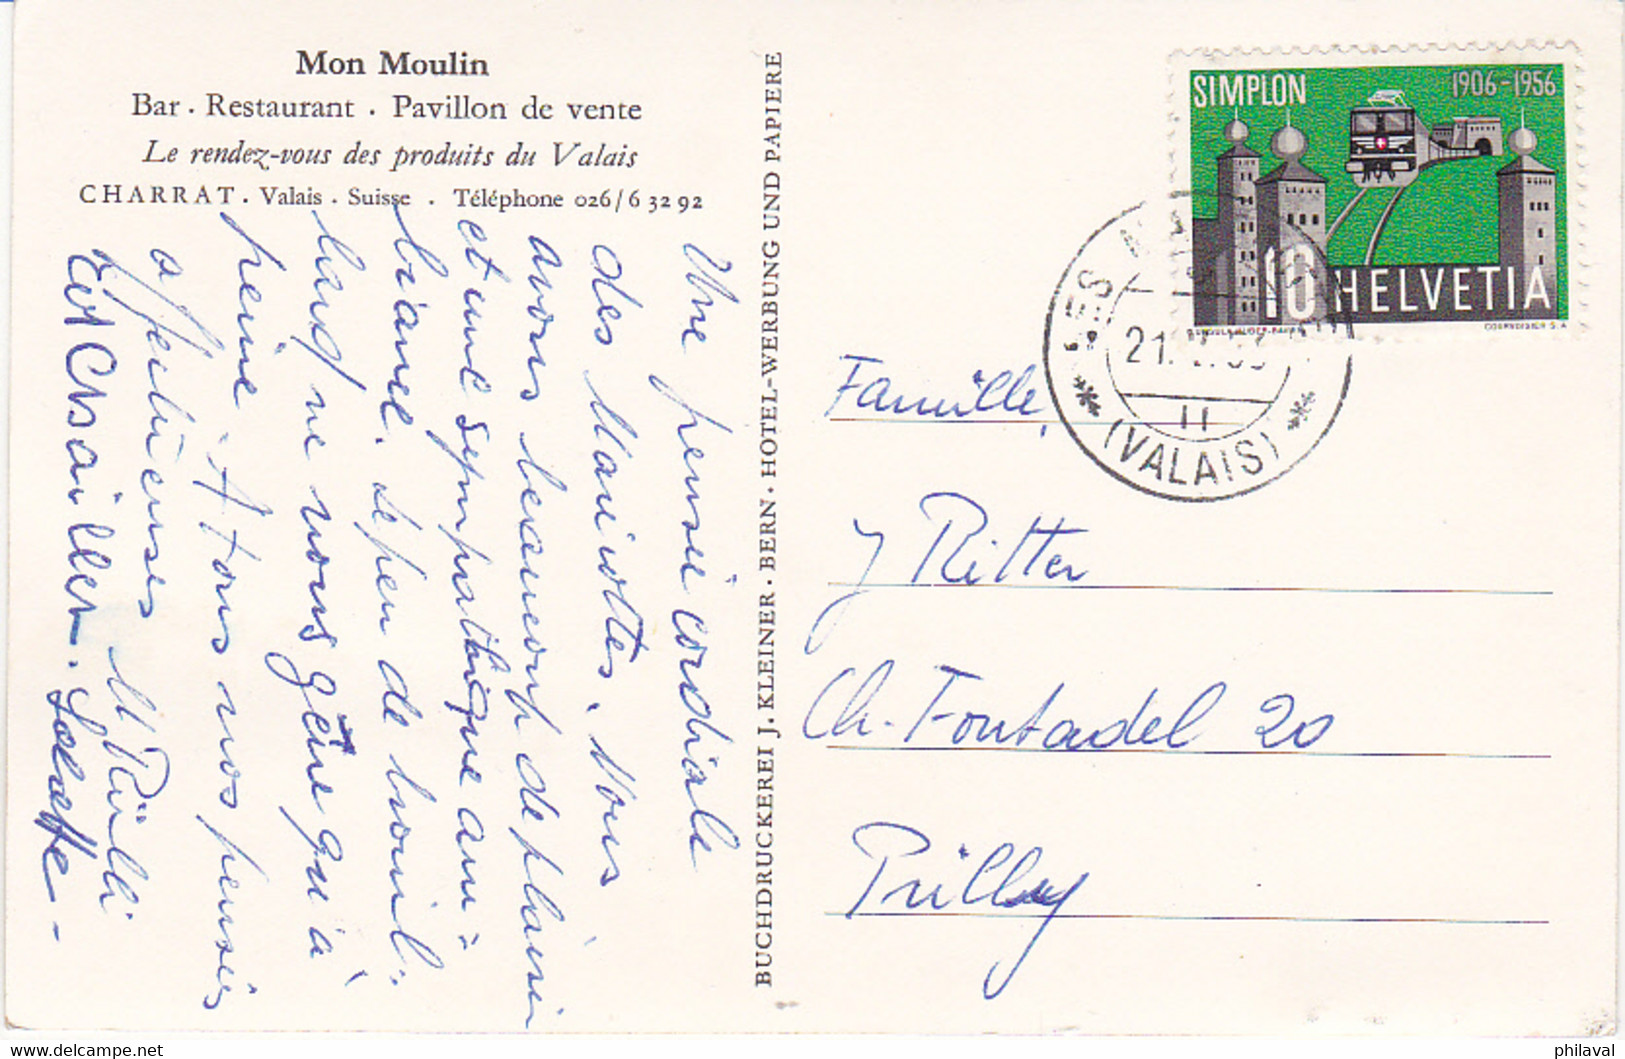 Mon Moulin
Bar . Restaurant . Pavillon de vente
Le rendez-vous des produits du Valais
CHARRAT . Valais . Suisse . Téléphone 026/6 32 92
Une pensée cordiale
des Mariotes. Nous
avons beaucoup de plaisir
et une sympathique am=
biance. Le peu de brouil-
lard ne nous gêne qu'à
peine. A tous nos pensées
affectueuses M Rüdli
BUCHDRUCKEREI J. KLEINER · BERN · HOTEL-WERBUNG UND PAPIERE
SIMPLON 1906-1956
10 HELVETIA
COURVOISIER S.A.
21.
(VALAIS)
Famille
J Ritter
Ch. Fontadel 20
Prilly
delcampe.net
philaval